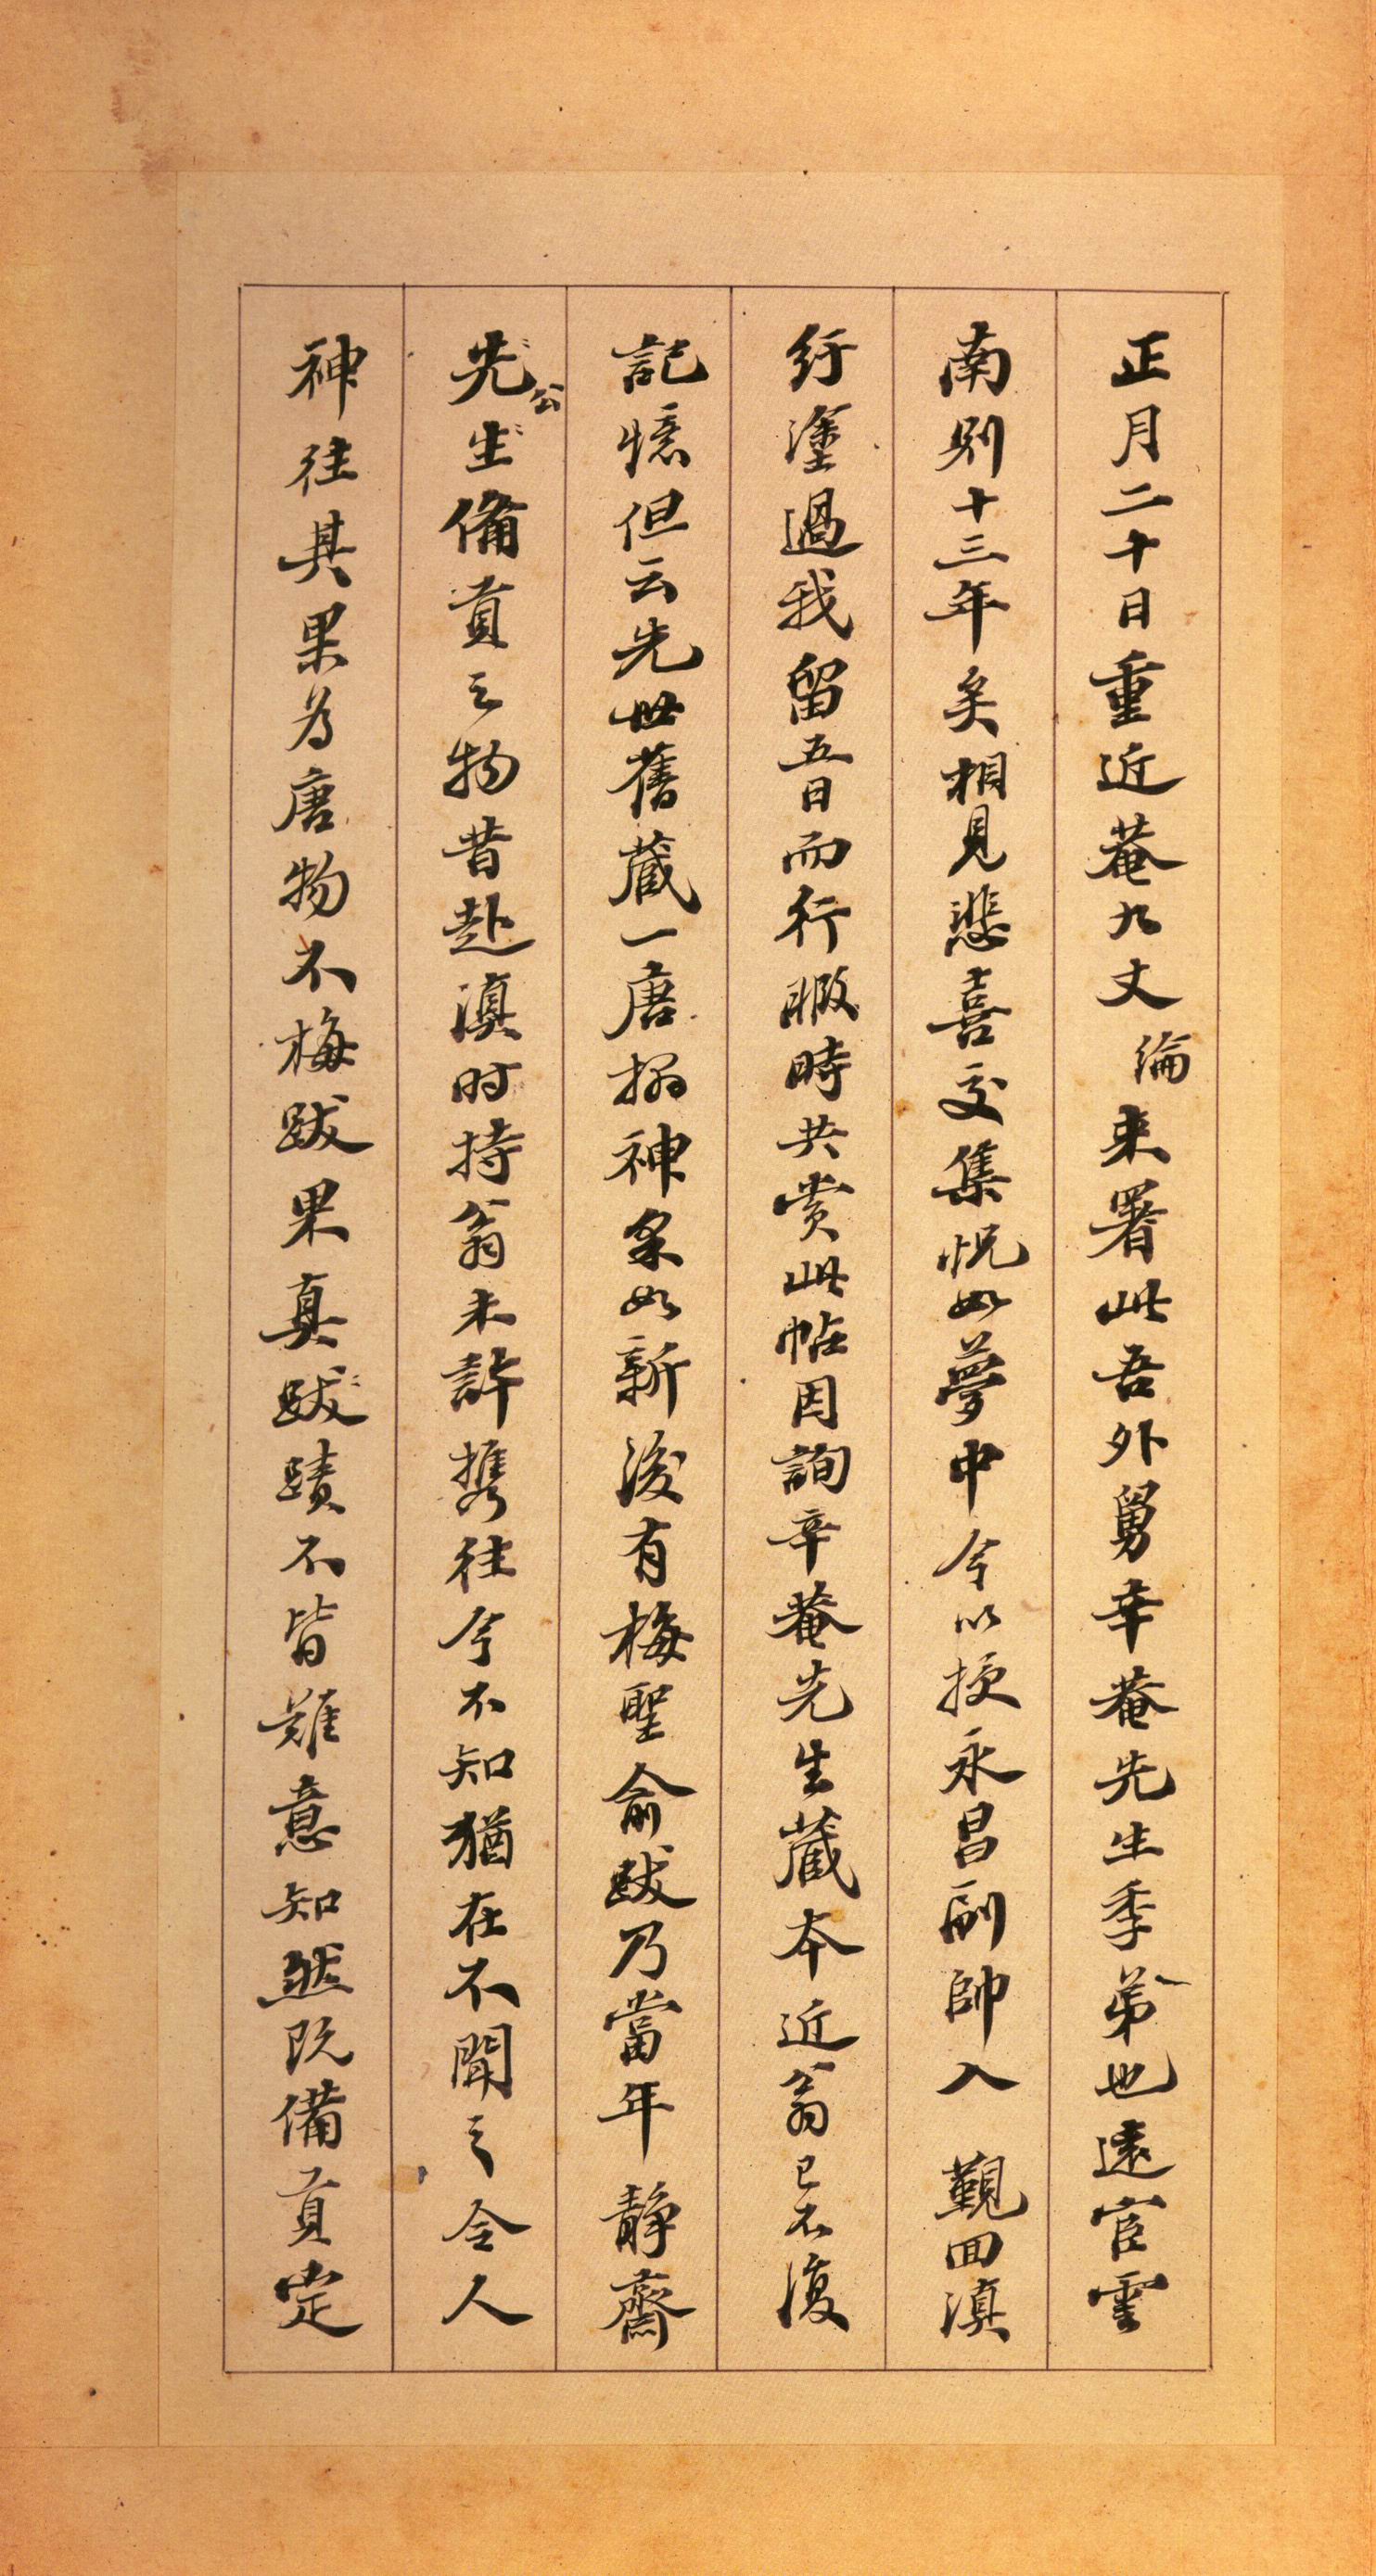 正月二十日重近菴九丈綸来署此吾外舅幸菴先生季弟也遠宦雲
南别十三年矣相見悲喜交集怳如夢中今以授永昌副帥入覲回滇
紆塗過我留五日而行暇時共賞此帖因詢幸菴先生藏本近翁已不復
記憶但云先世舊藏一唐搨神采如新後有梅聖俞跋乃當年靜齋
先生公備貢之物昔赴滇时持翁未許携往今不知猶在不聞之令人
神往其果为唐物不梅跋果真跋蹟不皆難意知然既備貢定